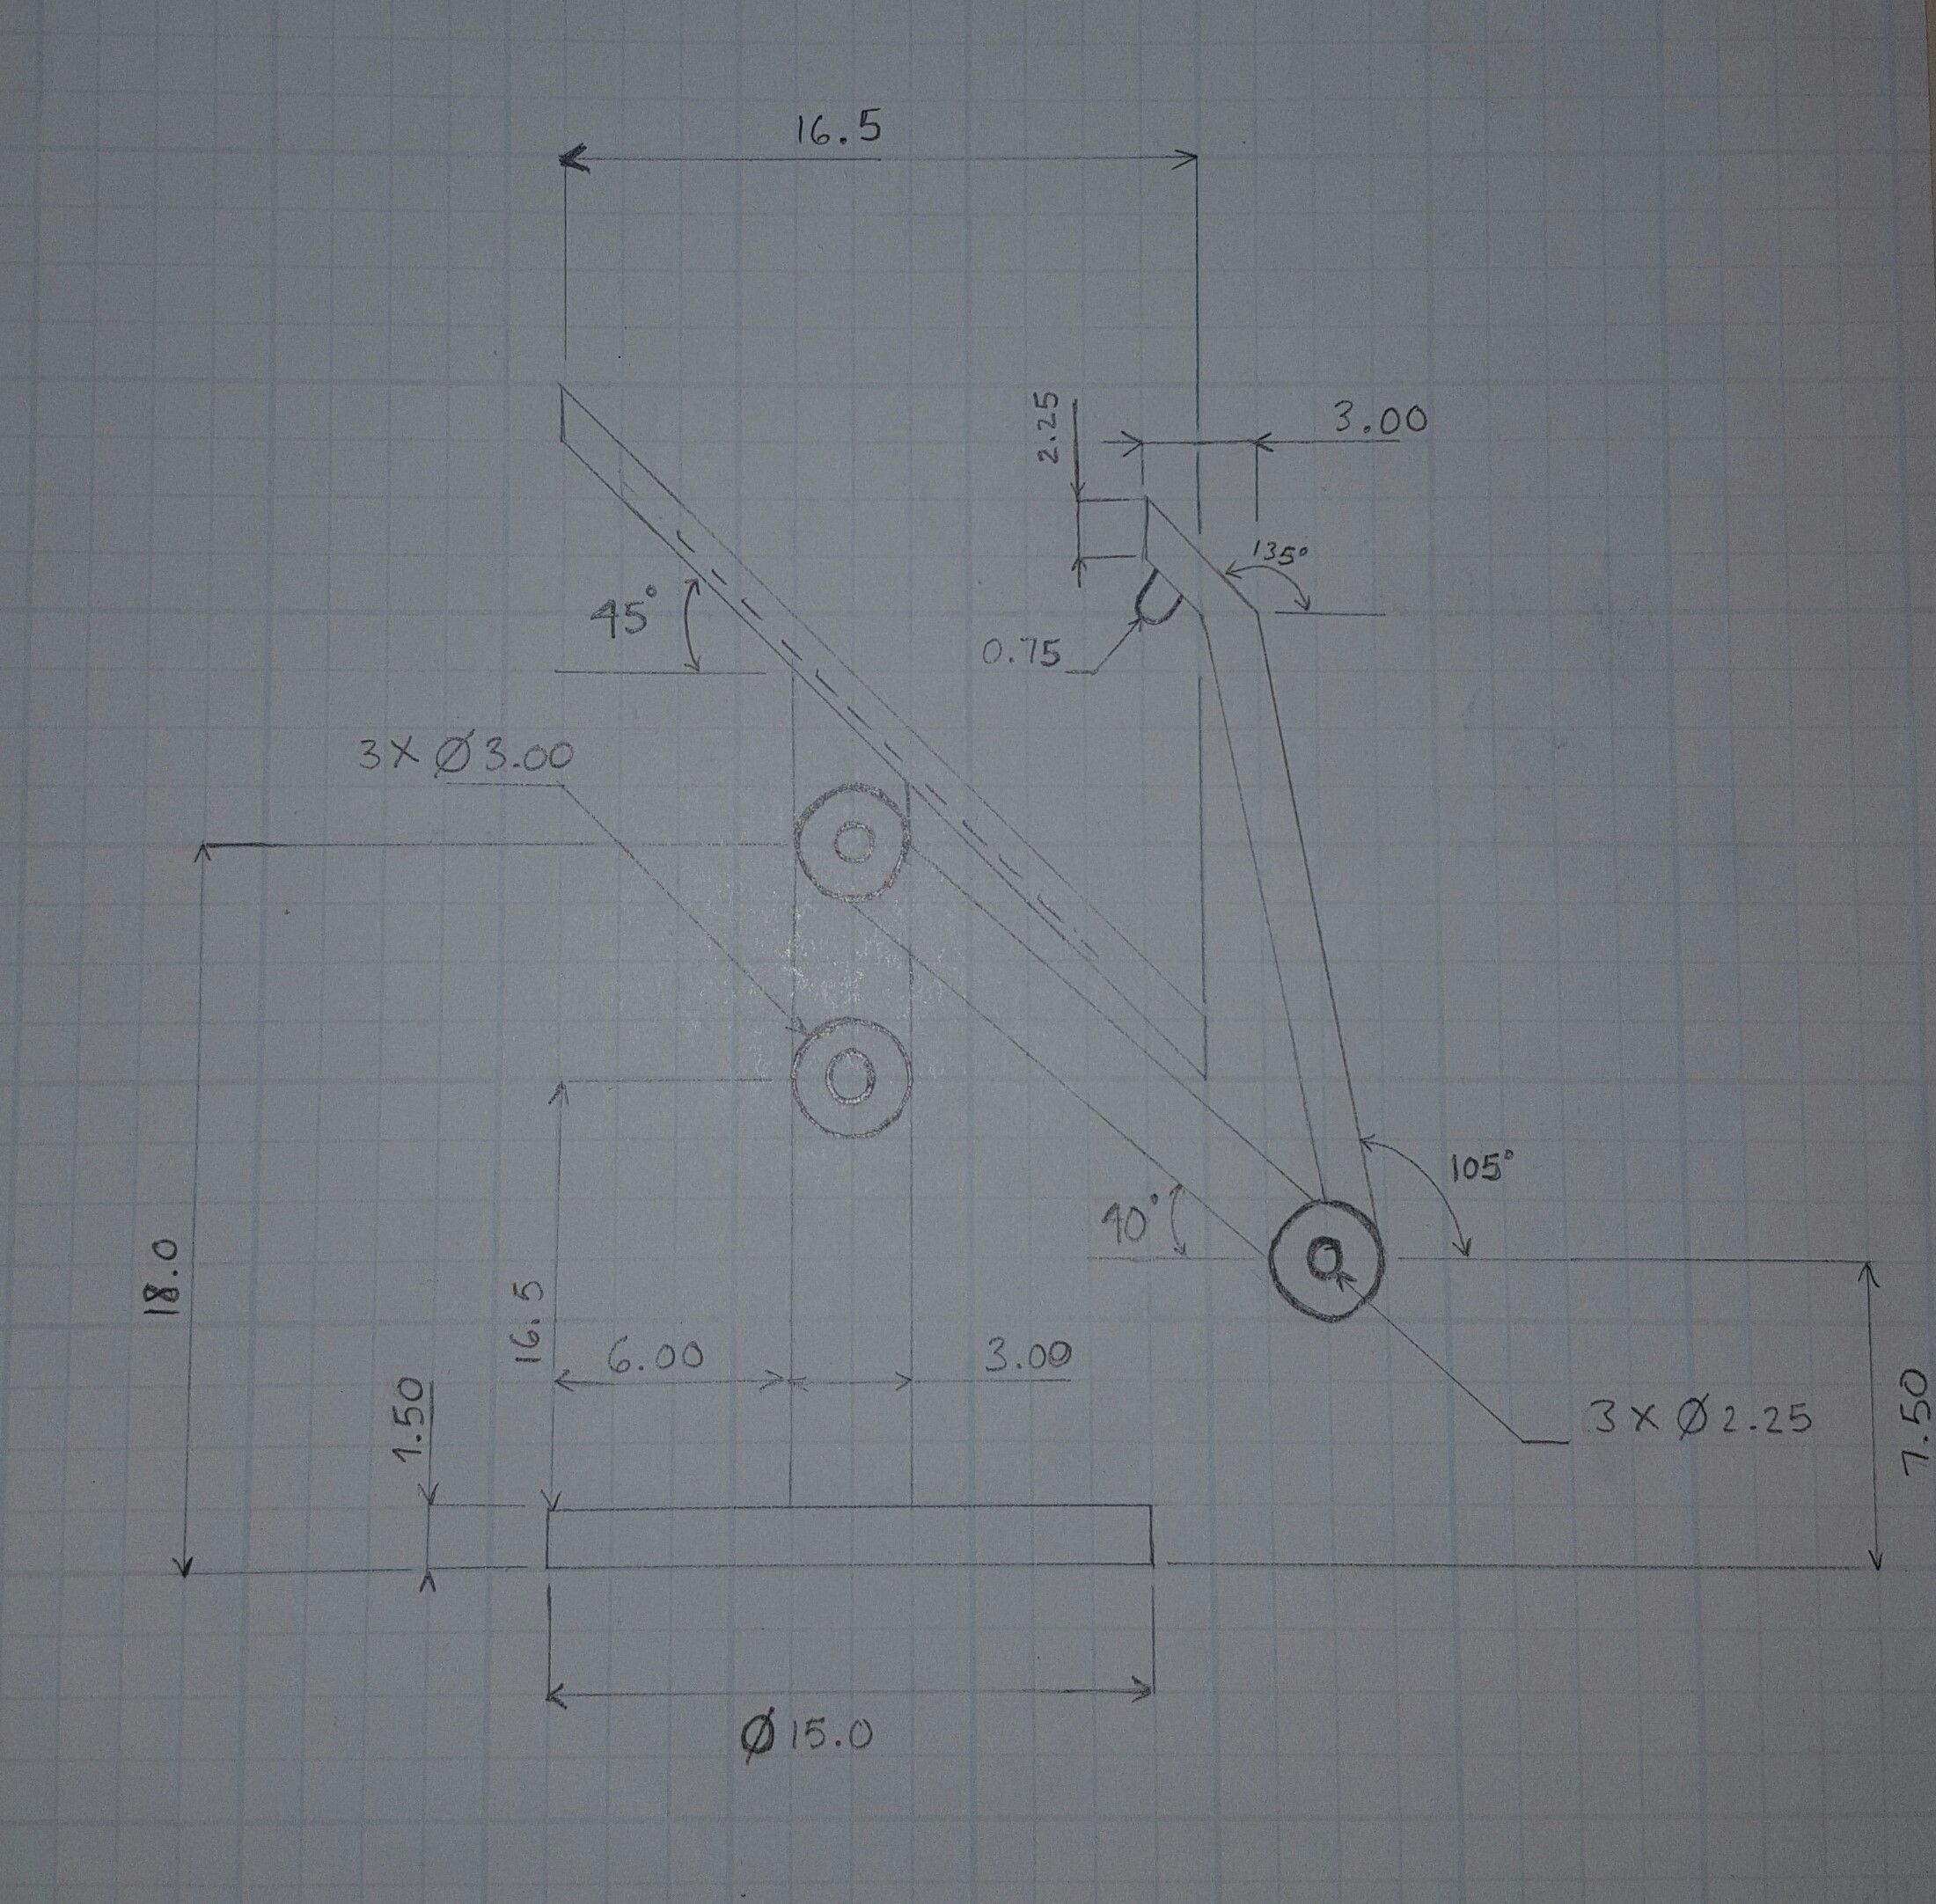 16.5
2.25
3.00
135°
45°
0.75
3X Ø3.00
105°
40°
18.0
16.5
6.00
3.00
1.50
3X Ø2.25
7.50
Ø15.0